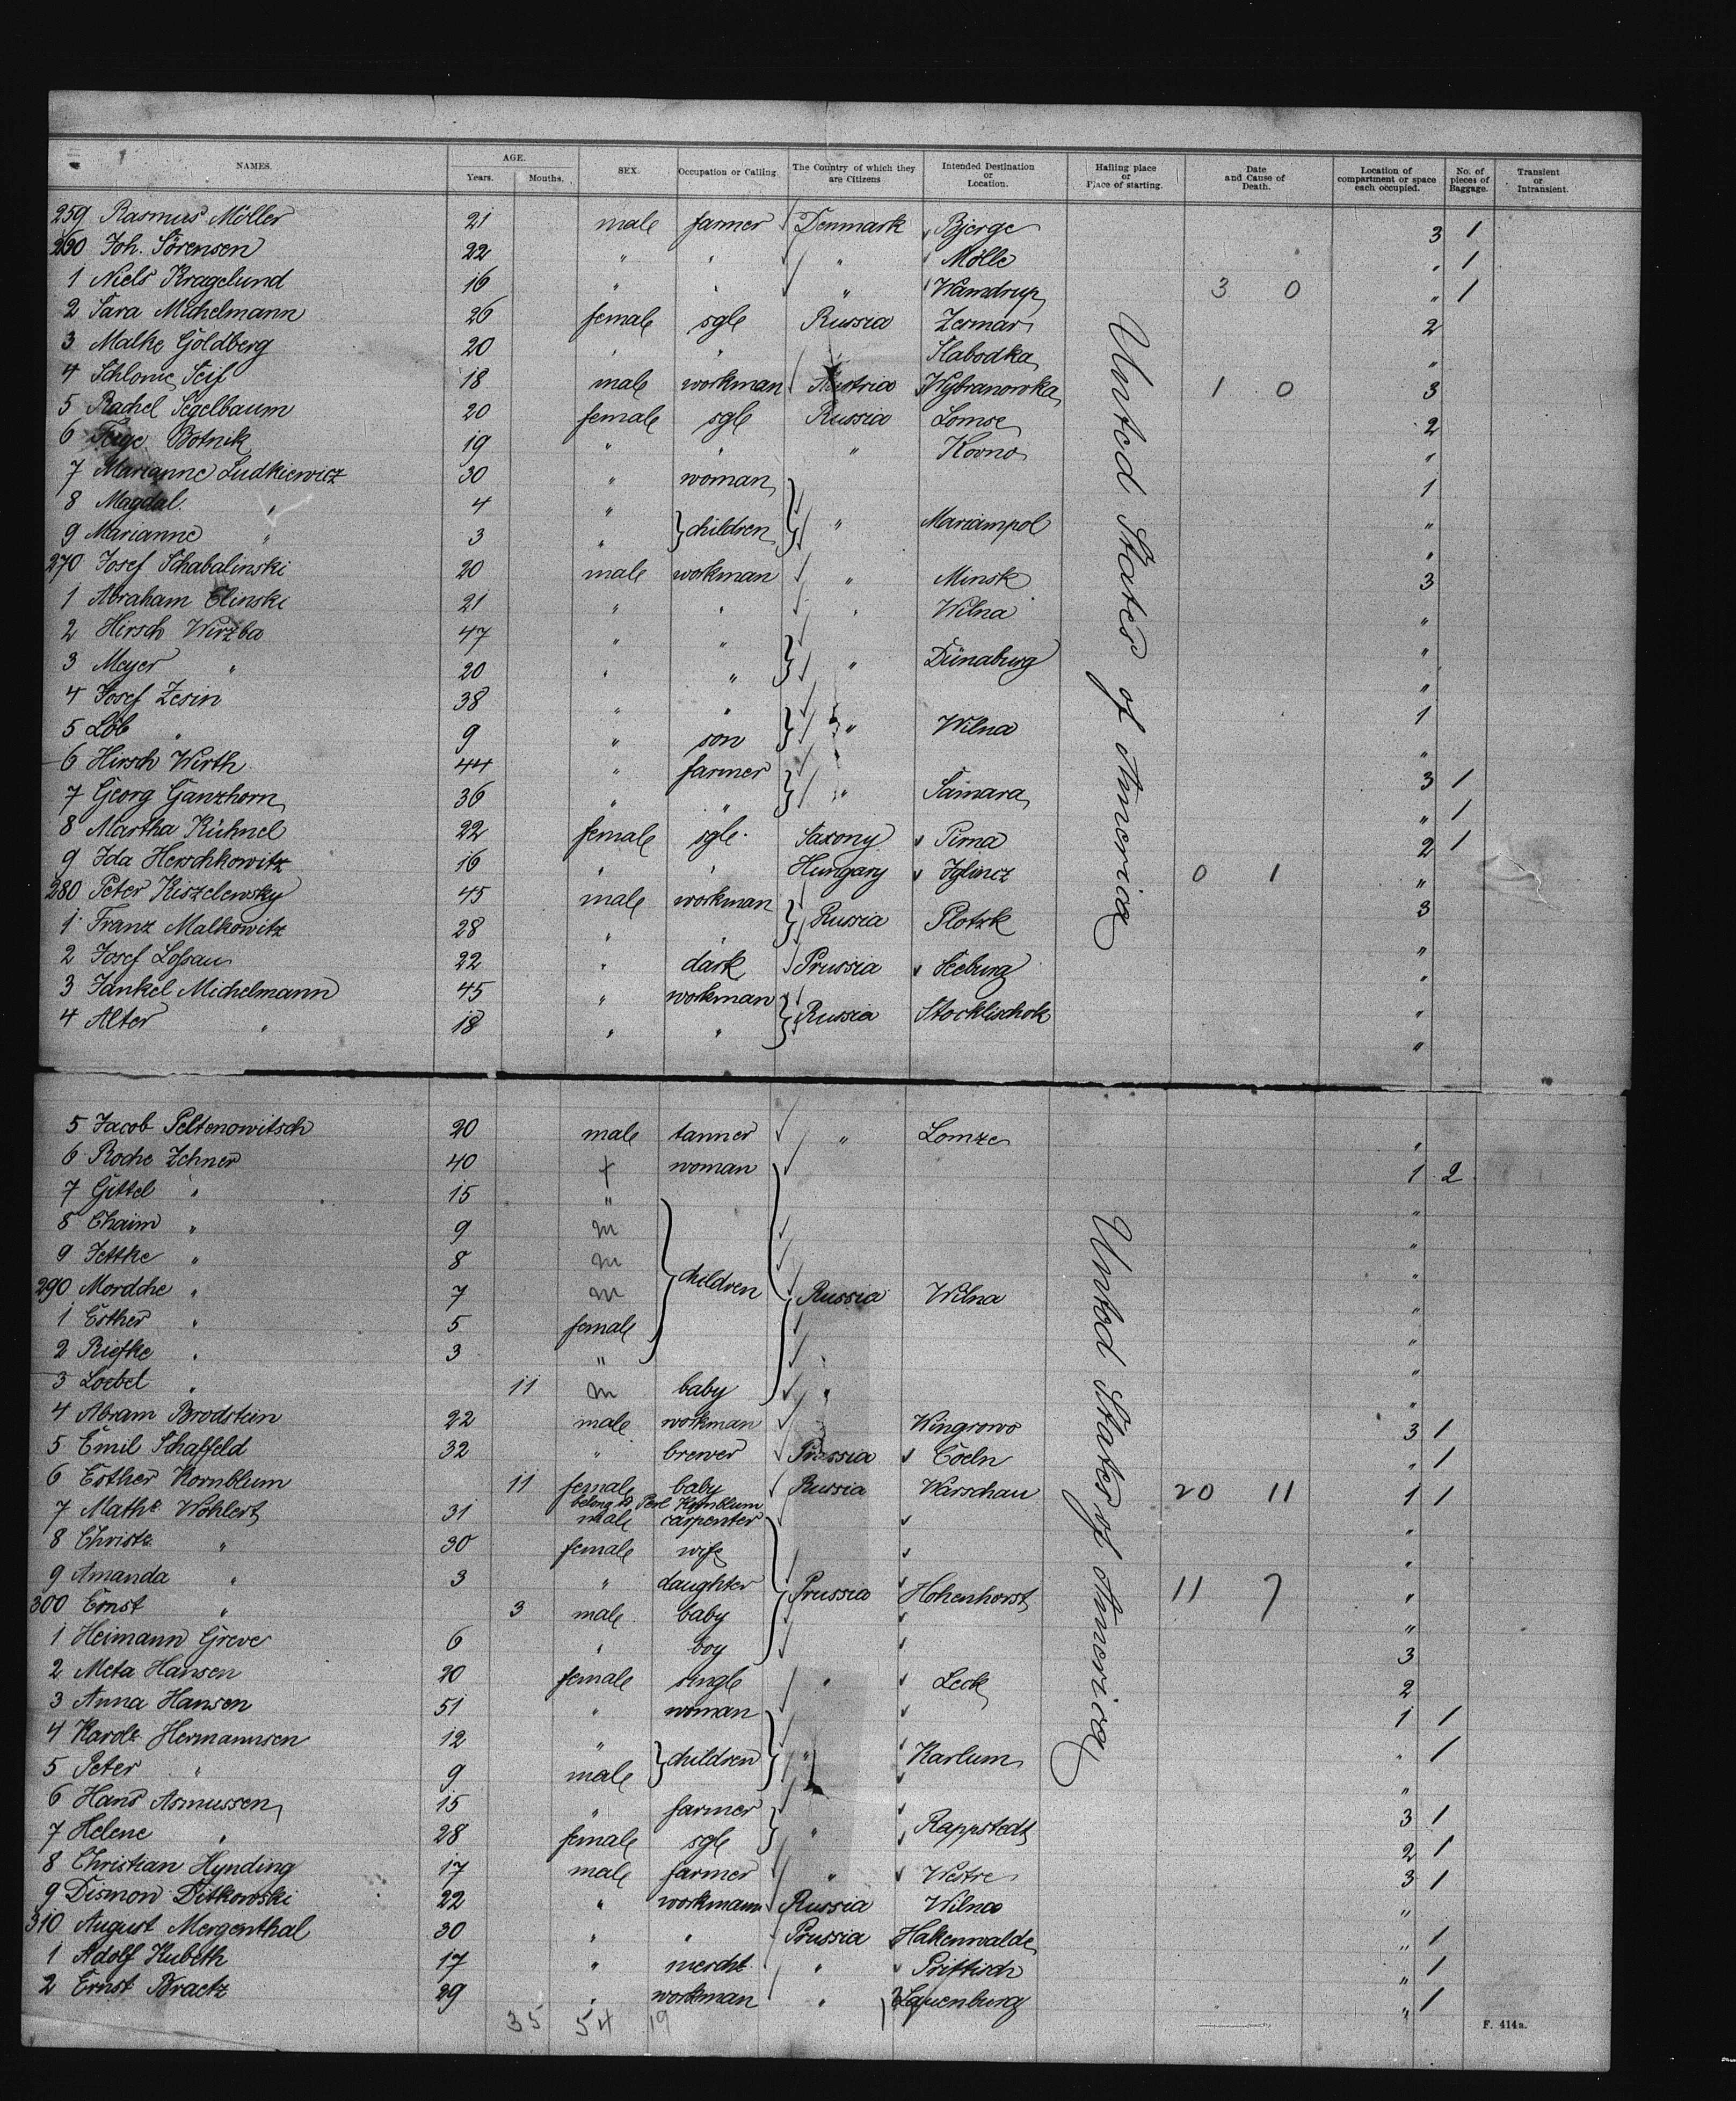 NAMES. AGE. Years. Months. SEX. Occupation or Calling The Country of which they are Citizens Intended Destination or Location. Hailing place or Place of starting. Date and Cause of Death. Location of compartment or space each occupied. No. of pieces of Baggage. Transient or Intransient.
259 Rasmus Möller 21 male farmer Denmark Bjerge 3 1
260 Joh. Sörensen 22 " " " Mölle " 1
1 Niels Kragelund 16 " " " Wamdrup 3 0 " 1
2 Sara Michelmann 26 female sgle Russia Zesmar 2
3 Malke Goldberg 20 " " Slabodka "
4 Schlome Seif 18 male workman Austria Wybranowka 1 0 3
5 Rachel Segelbaum 20 female sgle Russia Lomse 2
6 Feige Botnik 19 " " " Kovno "
7 Marianne Ludkiewicz 30 " woman 1
8 Magdal. " 4 " children " Mariampol "
9 Marianne " 3 " "
270 Josef Schabalinski 20 male workman " Minsk 3
1 Abraham Elinski 21 " " " Wilna "
2 Hirsch Wirzba 47 " " "
3 Meyer " 20 " " " Dünaburg "
4 Josef Zesin 38 " " 1
5 Löb " 9 " son " Wilna "
6 Hirsch Wirth 44 " farmer 3 1
7 Georg Ganzhorn 36 " " " Samara " 1
8 Martha Kühnel 22 female sgle. Saxony Pirna 2 1
9 Ida Herschkowitz 16 " " Hungary Iglincz 0 1 "
280 Peter Kiszelewsky 45 male workman 3
1 Franz Malkowitz 28 " " Russia Plotzk "
2 Josef Loßau 22 " dark Prussia Seeburg "
3 Jankel Michelmann 45 " workman "
4 Alter " 18 " " Russia Stocklischok "
5 Jacob Peltenowitsch 20 male tanner " Lomze "
6 Roche Zehner 40 f woman 1 2
7 Gittel " 15 " "
8 Chaim " 9 m "
9 Jettke " 8 m "
290 Mordche " 7 m children Russia Wilna "
1 Esther " 5 female "
2 Riefke " 3 " "
3 Loebel " 11 m baby "
4 Abram Brodstein 22 male workman " Wingrowo 3 1
5 Emil Schaffeld 32 " brewer Prussia Coeln " 1
6 Esther Kornblum 11 female baby Russia Warschau 20 11 1 1
belong to Perl Kornblum
7 Maths Wohlert 31 male carpenter "
8 Christe " 30 female wife "
9 Amanda " 3 " daughter Prussia Hohenhorst 11 7 "
300 Ernst " 3 male baby "
1 Heimann Greve 6 " boy 3
2 Meta Hansen 20 female single " Leck 2
3 Anna Hansen 51 " woman 1 1
4 Karole Hermannsen 12 " children " Karlum " 1
5 Peter " 9 male "
6 Hans Asmussen 15 " farmer 3 1
7 Helene " 28 female sgle " Rappstedt 2 1
8 Christian Hynding 17 male farmer " Westre 3 1
9 Dismon Ditkowski 22 " workmann Russia Wilna "
310 August Mergenthal 30 " " Prussia Hakenwalde " 1
1 Adolf Kubeth 17 " mercht " Prittisch " 1
2 Ernst Braetz 29 " workman " Lauenburg " 1
35 54 19
United States of America
United States of America
F. 414a.